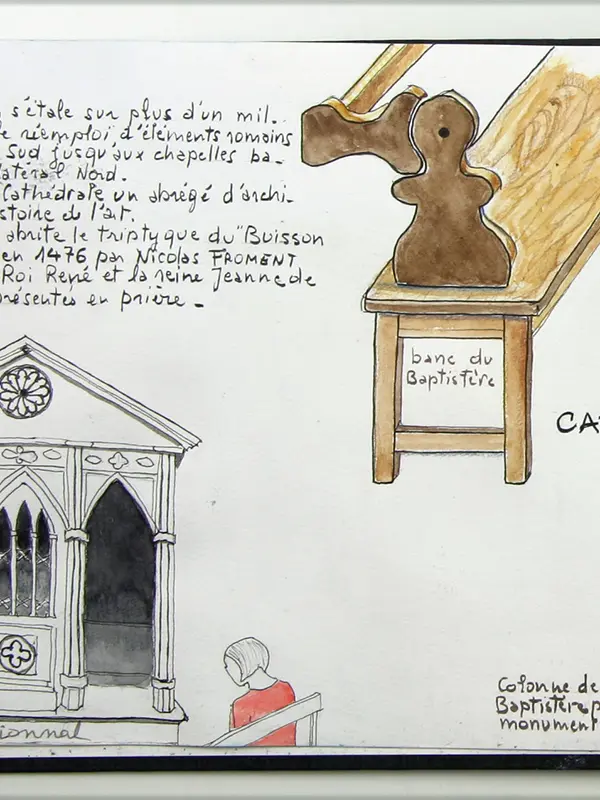 s'étale sur plus d'un mil.
réemploi d'éléments romains
Sud jusqu'aux chapelles ba-
latéral Nord.
Cathédrale un abrégé d'archi-
stoire de l'art.
abrite le triptyque du "Buisson
en 1476 par Nicolas FROMENT
Roi René et la reine Jeanne de
présentés en prière -
banc du
Baptistère
CA
Colonne de
Baptistère p
monument
ionnal